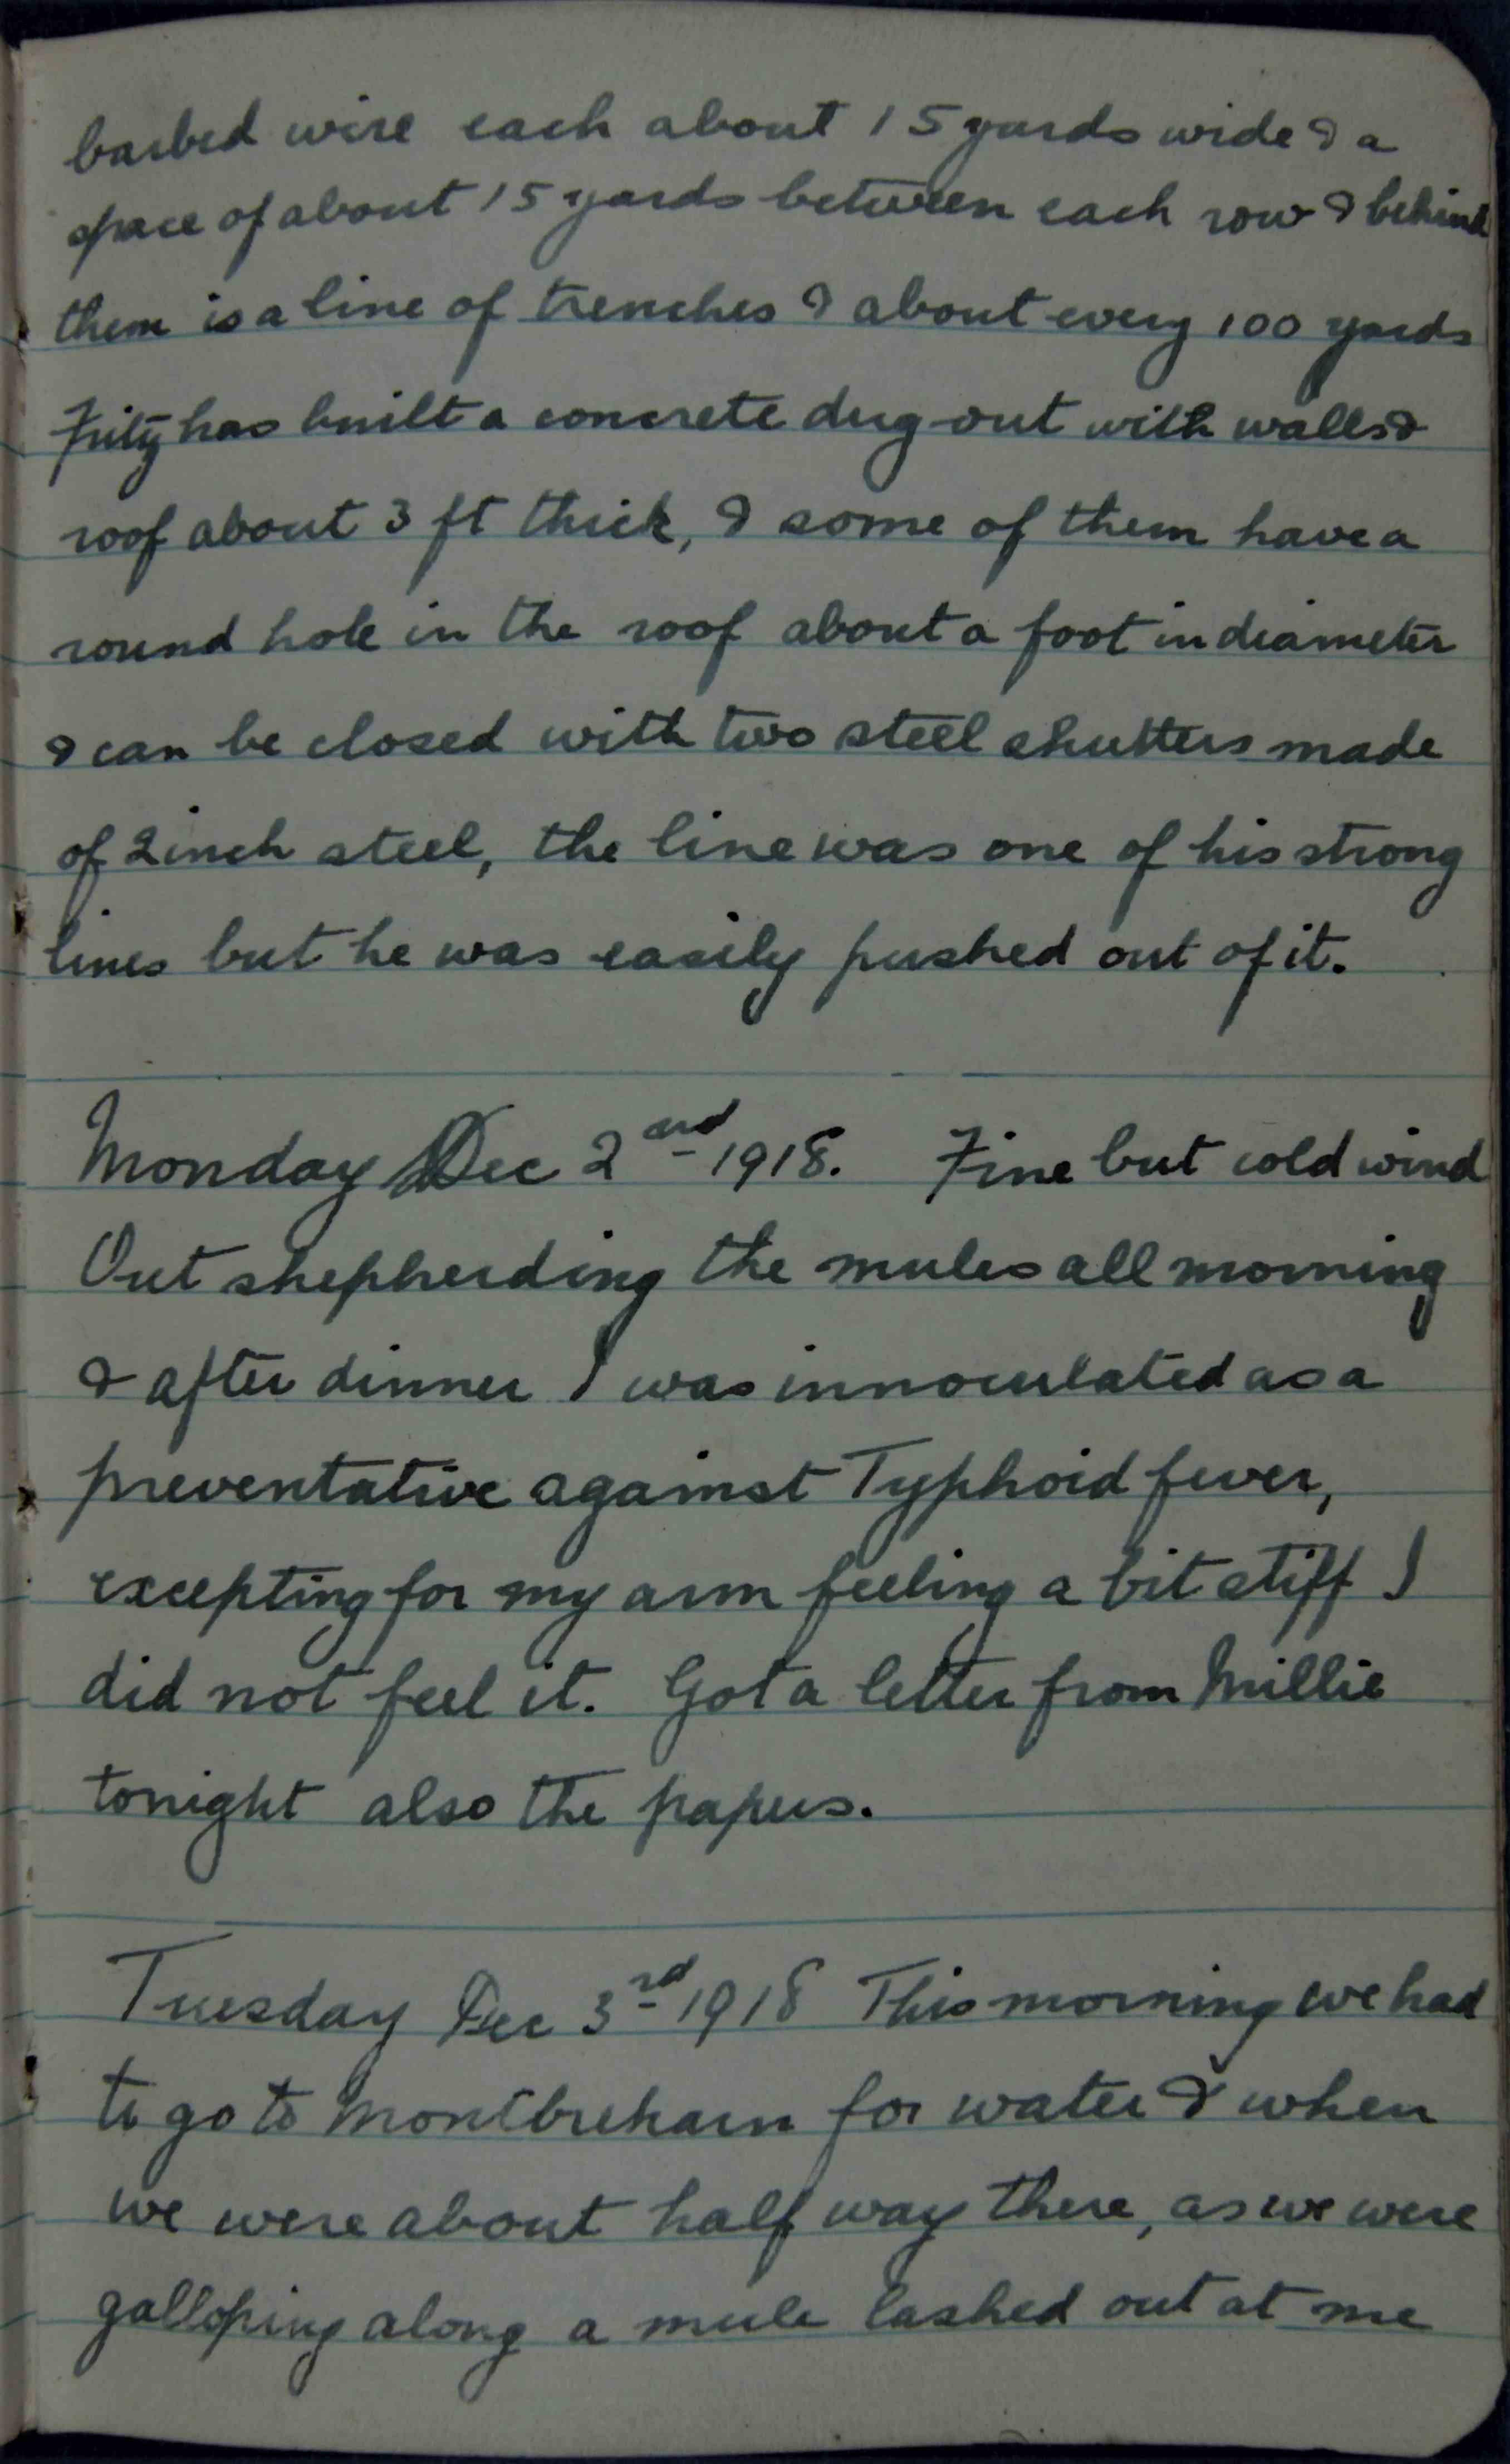 barbed wire each about 15 yards wide & a
space of about 15 yards between each row & behind
them is a line of trenches & about every 100 yards
Fritz has built a concrete dug-out with walls &
roof about 3 ft thick, & some of them have a
round hole in the roof about a foot in diameter
& can be closed with two steel shutters made
of 2 inch steel, the line was one of his strong
lines but he was easily pushed out of it.
Monday Dec 2nd 1918. Fine but cold wind
Out shepherding the mules all morning
& after dinner I was innoculated as a
preventative against Typhoid fever,
excepting for my arm feeling a bit stiff I
did not feel it. Got a letter from Millie
tonight also the papers.
Tuesday Dec 3rd 1918 This morning we had
to go to Montbrehain for water & when
we were about half way there, as we were
galloping along a mule lashed out at me